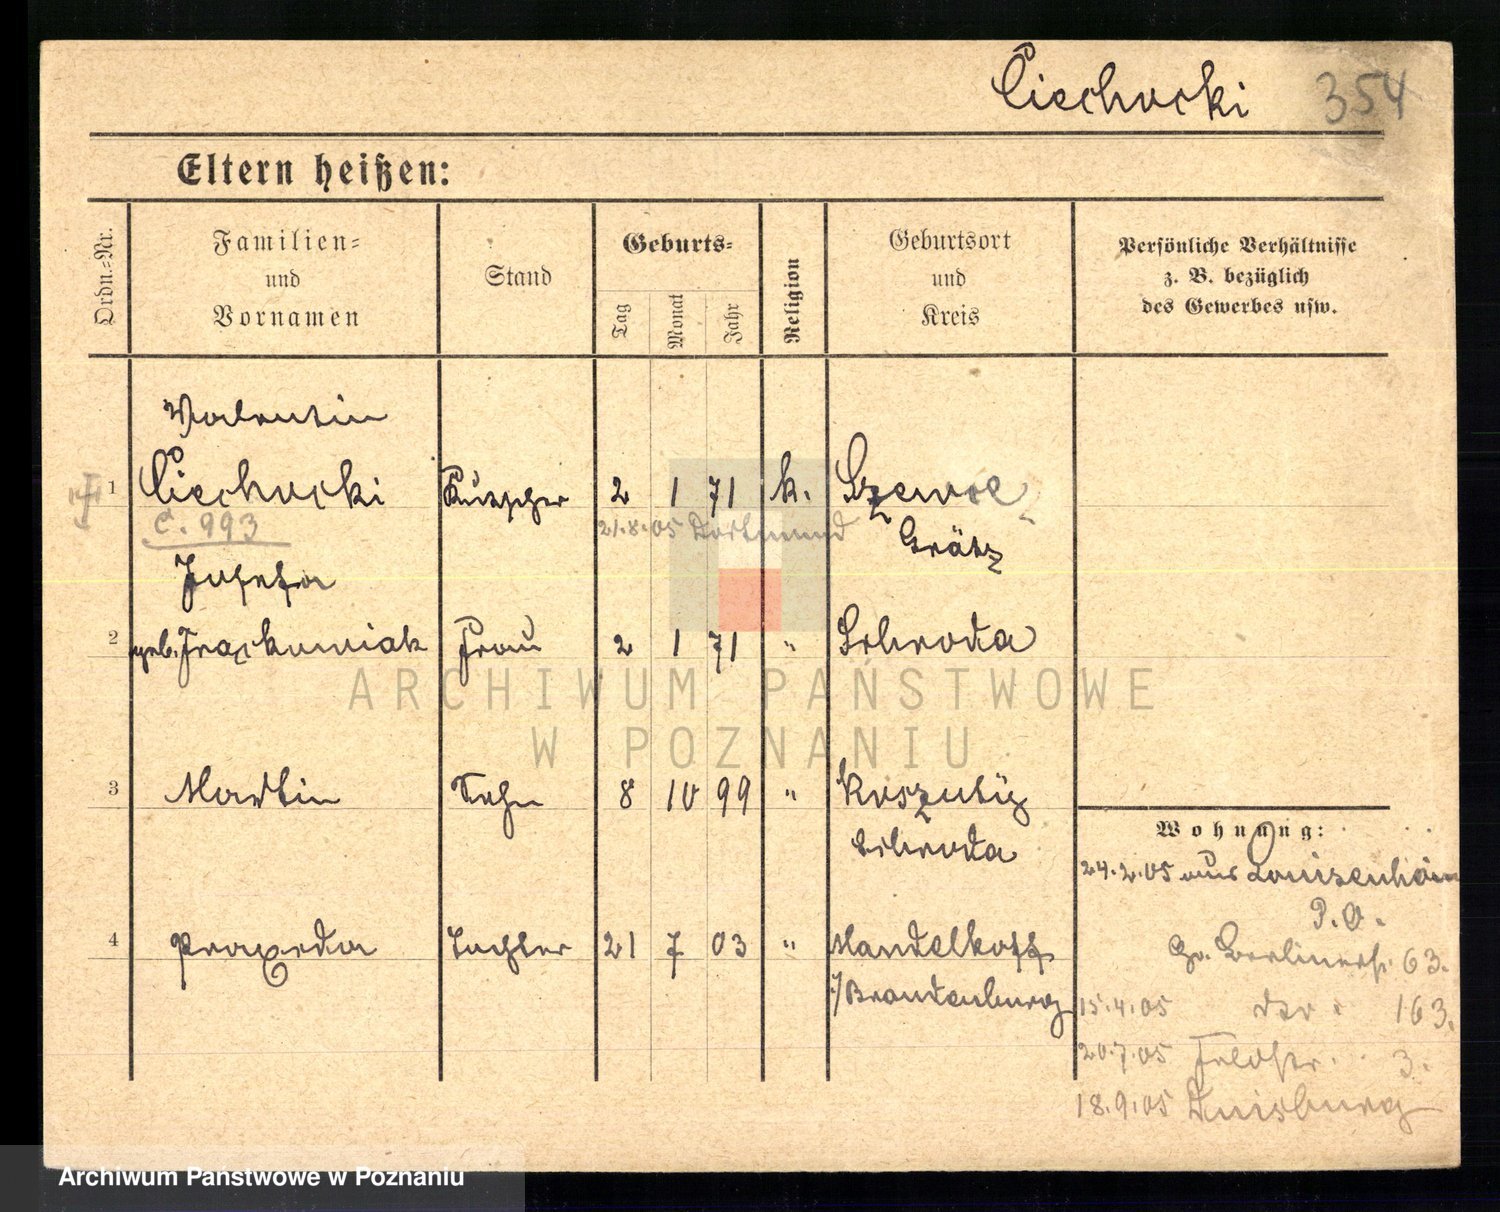 Ciechocki 354
Eltern heißen:
Ordn.-Nr.
Familien- und Vornamen
Stand
Geburts-
Tag
Monat
Jahr
Religion
Geburtsort und Kreis
Persönliche Verhältnisse
z. B. bezüglich
des Gewerbes usw.
Valentin
1 Ciechocki Kutscher 2 1 71 k. Szewce
C. 993 21.8.05 Dortmund
Grätz
Josefa
2 geb. Frackowiak Frau 2 1 71 " Schroda
3 Martin Sohn 8 10 99 " Koszuty
Schroda
4 Praxeda Tochter 21 7 03 " Mandelkoff
i/Brandenburg
Wohnung:
24.2.05 aus Louisenhain
P.O.
Gr. Berlinerstr. 63.
15.4.05 der " 163.
20.7.05 Feldstr. 3.
18.9.05 Duisburg
ARCHIWUM PAŃSTWOWE
W POZNANIU
Archiwum Państwowe w Poznaniu